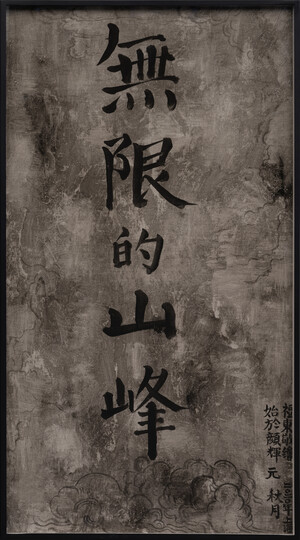 無限的山峰
始於顏輝 元 秋月